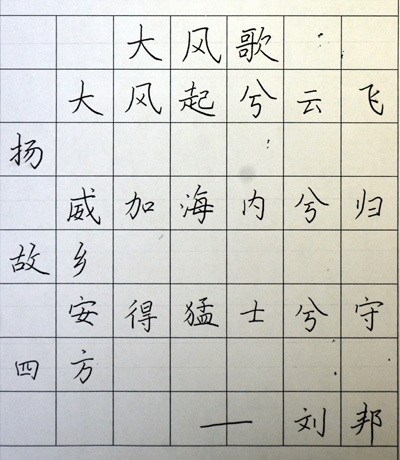 大风歌
大风起兮云飞
扬
威加海内兮归
故乡
安得猛士兮守
四方
——刘邦